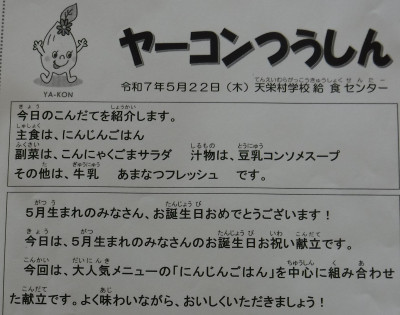 ヤーコンつうしん
YA-KON
令和7年5月22日(木) 天栄村学校給食センター
今日のこんだてを紹介します。
主食は、にんじんごはん
副菜は、こんにゃくごまサラダ 汁物は、豆乳コンソメスープ
その他は、牛乳 あまなつフレッシュ です。
5月生まれのみなさん、お誕生日おめでとうございます!
今日は、5月生まれのみなさんのお誕生日お祝い献立です。
今回は、大人気メニューの「にんじんごはん」を中心に組み合わせ
た献立です。よく味わいながら、おいしくいただきましょう!